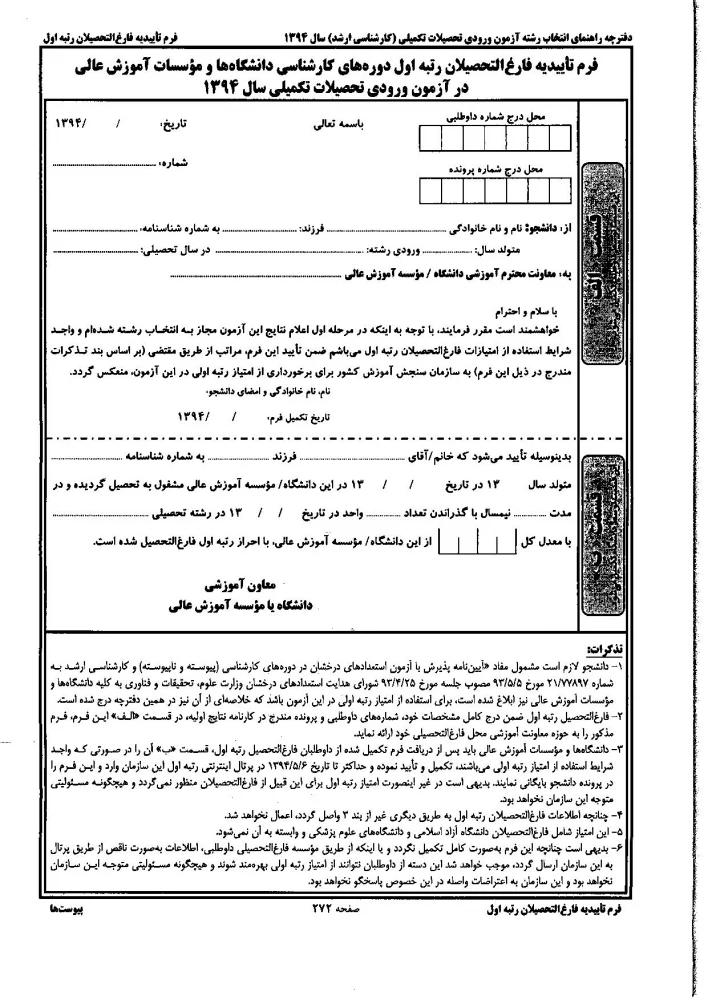 دفترچه راهنمای انتخاب رشته آزمون ورودی تحصیلات تکمیلی (کارشناسی ارشد) سال ۱۳۹۴
فرم تأییدیه فارغ‌التحصیلان رتبه اول
فرم تأییدیه فارغ‌التحصیلان رتبه اول دوره‌های کارشناسی دانشگاه‌ها و مؤسسات آموزش عالی
در آزمون ورودی تحصیلات تکمیلی سال ۱۳۹۴
محل درج شماره داوطلبی
باسمه تعالی
تاریخ: / /۱۳۹۴
محل درج شماره پرونده
شماره:
قسمت الف
از: دانشجو: نام و نام خانوادگی فرزند: به شماره شناسنامه:
متولد سال: ورودی رشته: در سال تحصیلی:
به: معاونت محترم آموزشی دانشگاه / مؤسسه آموزش عالی
با سلام و احترام
خواهشمند است مقرر فرمایند، با توجه به اینکه در مرحله اول اعلام نتایج این آزمون مجاز به انتخاب رشته شده‌ام و واجد
شرایط استفاده از امتیازات فارغ‌التحصیلان رتبه اول می‌باشم ضمن تأیید این فرم، مراتب از طریق مقتضی (بر اساس بند تذکرات
مندرج در ذیل این فرم) به سازمان سنجش آموزش کشور برای برخورداری از امتیاز رتبه اولی در این آزمون، منعکس گردد.
نام، نام خانوادگی و امضای دانشجو:
تاریخ تکمیل فرم: / /۱۳۹۴
قسمت ب
بدینوسیله تأیید می‌شود که خانم/آقای فرزند به شماره شناسنامه
متولد سال ۱۳ در تاریخ / / ۱۳ در این دانشگاه/ مؤسسه آموزش عالی مشغول به تحصیل گردیده و در
مدت نیمسال با گذراندن تعداد واحد در تاریخ / / ۱۳ در رشته تحصیلی
با معدل کل از این دانشگاه/ مؤسسه آموزش عالی، با احراز رتبه اول فارغ‌التحصیل شده است.
معاون آموزشی
دانشگاه یا مؤسسه آموزش عالی
تذکرات:
۱- دانشجو لازم است مشمول مفاد «آیین‌نامه پذیرش با آزمون استعدادهای درخشان در دوره‌های کارشناسی (پیوسته و ناپیوسته) و کارشناسی ارشد به
شماره ۲۱/۷۷۸۹۷ مورخ ۹۳/۵/۵ مصوب جلسه مورخ ۹۳/۴/۲۵ شورای هدایت استعدادهای درخشان وزارت علوم، تحقیقات و فناوری به کلیه دانشگاه‌ها و
مؤسسات آموزش عالی نیز ابلاغ شده است، برای استفاده از امتیاز رتبه اولی در این آزمون باشد که خلاصه‌ای از آن نیز در همین دفترچه درج شده است.
۲- فارغ‌التحصیل رتبه اول ضمن درج کامل مشخصات خود، شماره‌های داوطلبی و پرونده مندرج در کارنامه نتایج اولیه، در قسمت «الف» این فرم، فرم
مذکور را به حوزه معاونت آموزشی محل فارغ‌التحصیلی خود ارائه نماید.
۳- دانشگاه‌ها و مؤسسات آموزش عالی باید پس از دریافت فرم تکمیل شده از داوطلبان فارغ‌التحصیل رتبه اول، قسمت «ب» آن را در صورتی که واجد
شرایط استفاده از امتیاز رتبه اولی می‌باشند، تکمیل و تأیید نموده و حداکثر تا تاریخ ۱۳۹۴/۵/۶ در پرتال اینترنتی رتبه اول این سازمان وارد و این فرم را
در پرونده دانشجو بایگانی نمایند. بدیهی است در غیر اینصورت امتیاز رتبه اول برای این قبیل از فارغ‌التحصیلان منظور نمی‌گردد و هیچگونه مسئولیتی
متوجه این سازمان نخواهد بود.
۴- چنانچه اطلاعات فارغ‌التحصیلان رتبه اول به طریق دیگری غیر از بند ۳ واصل گردد، اعمال نخواهد شد.
۵- این امتیاز شامل فارغ‌التحصیلان دانشگاه آزاد اسلامی و دانشگاه‌های علوم پزشکی و وابسته به آن نمی‌شود.
۶- بدیهی است چنانچه این فرم به‌صورت کامل تکمیل نگردد و یا اینکه از طریق مؤسسه فارغ‌التحصیلی داوطلبی، اطلاعات به‌صورت ناقص از طریق پرتال
به این سازمان ارسال گردد، موجب خواهد شد این دسته از داوطلبان نتوانند از امتیاز رتبه اولی بهره‌مند شوند و هیچگونه مسئولیتی متوجه این سازمان
نخواهد بود و این سازمان به اعتراضات واصله در این خصوص پاسخگو نخواهد بود.
فرم تأییدیه فارغ‌التحصیلان رتبه اول
صفحه ۲۷۲
پیوست‌ها